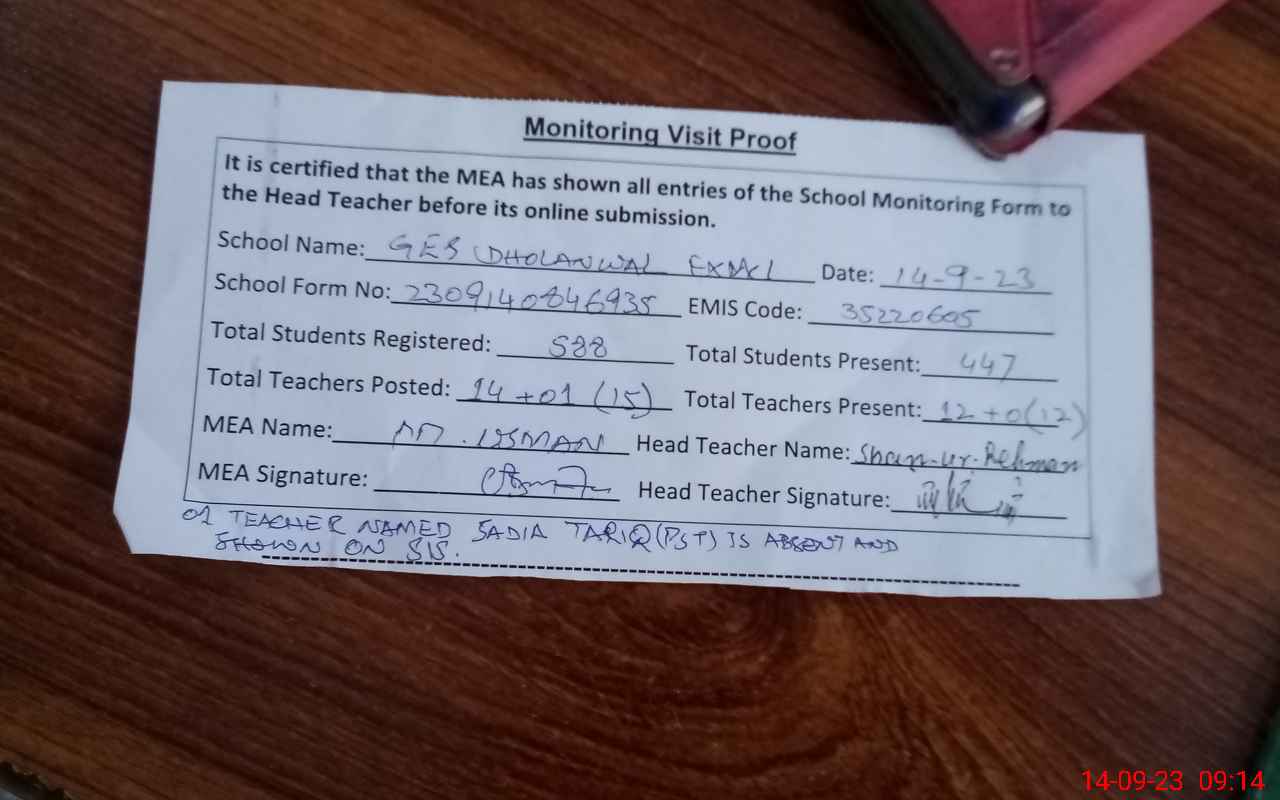 Monitoring Visit Proof
It is certified that the MEA has shown all entries of the School Monitoring Form to
the Head Teacher before its online submission.
School Name: GES DHOLANWAL Date: 14-9-23
School Form No: 2309140846935 EMIS Code: 35220605
Total Students Registered: 588 Total Students Present: 447
Total Teachers Posted: 14+01 (15) Total Teachers Present: 12+0(12)
MEA Name: M. USMAN Head Teacher Name: Shan-ur-Rehman
MEA Signature: Head Teacher Signature:
01 TEACHER NAMED SADIA TARIQ (PST) IS ABSENT AND
SHOWN ON SIS.
14-09-23 09:14